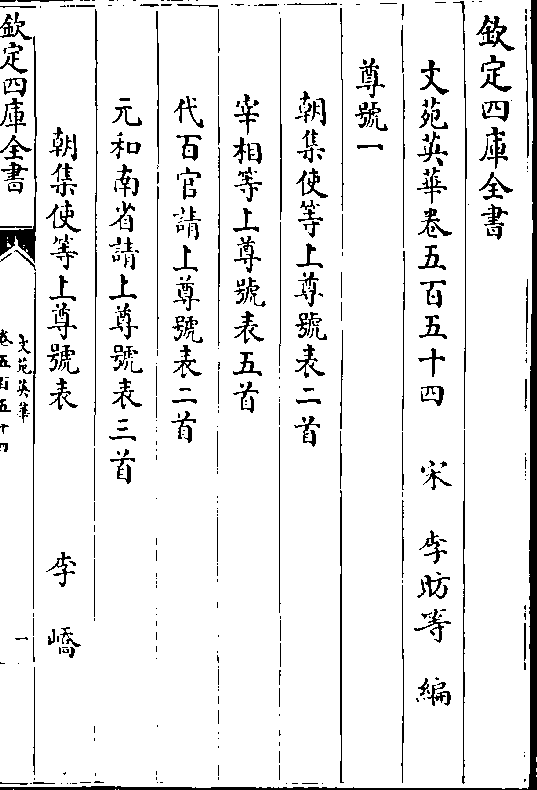 欽定四庫全書
文苑英華卷五百五十四 宋 李昉等 編
尊號一
朝集使等上尊號表二首
宰相等上尊號表五首
代百官請上尊號表二首
元和南省請上尊號表三首
朝集使等上尊號表 李嶠
欽定四庫全書
文苑英華
卷五百五十四
一